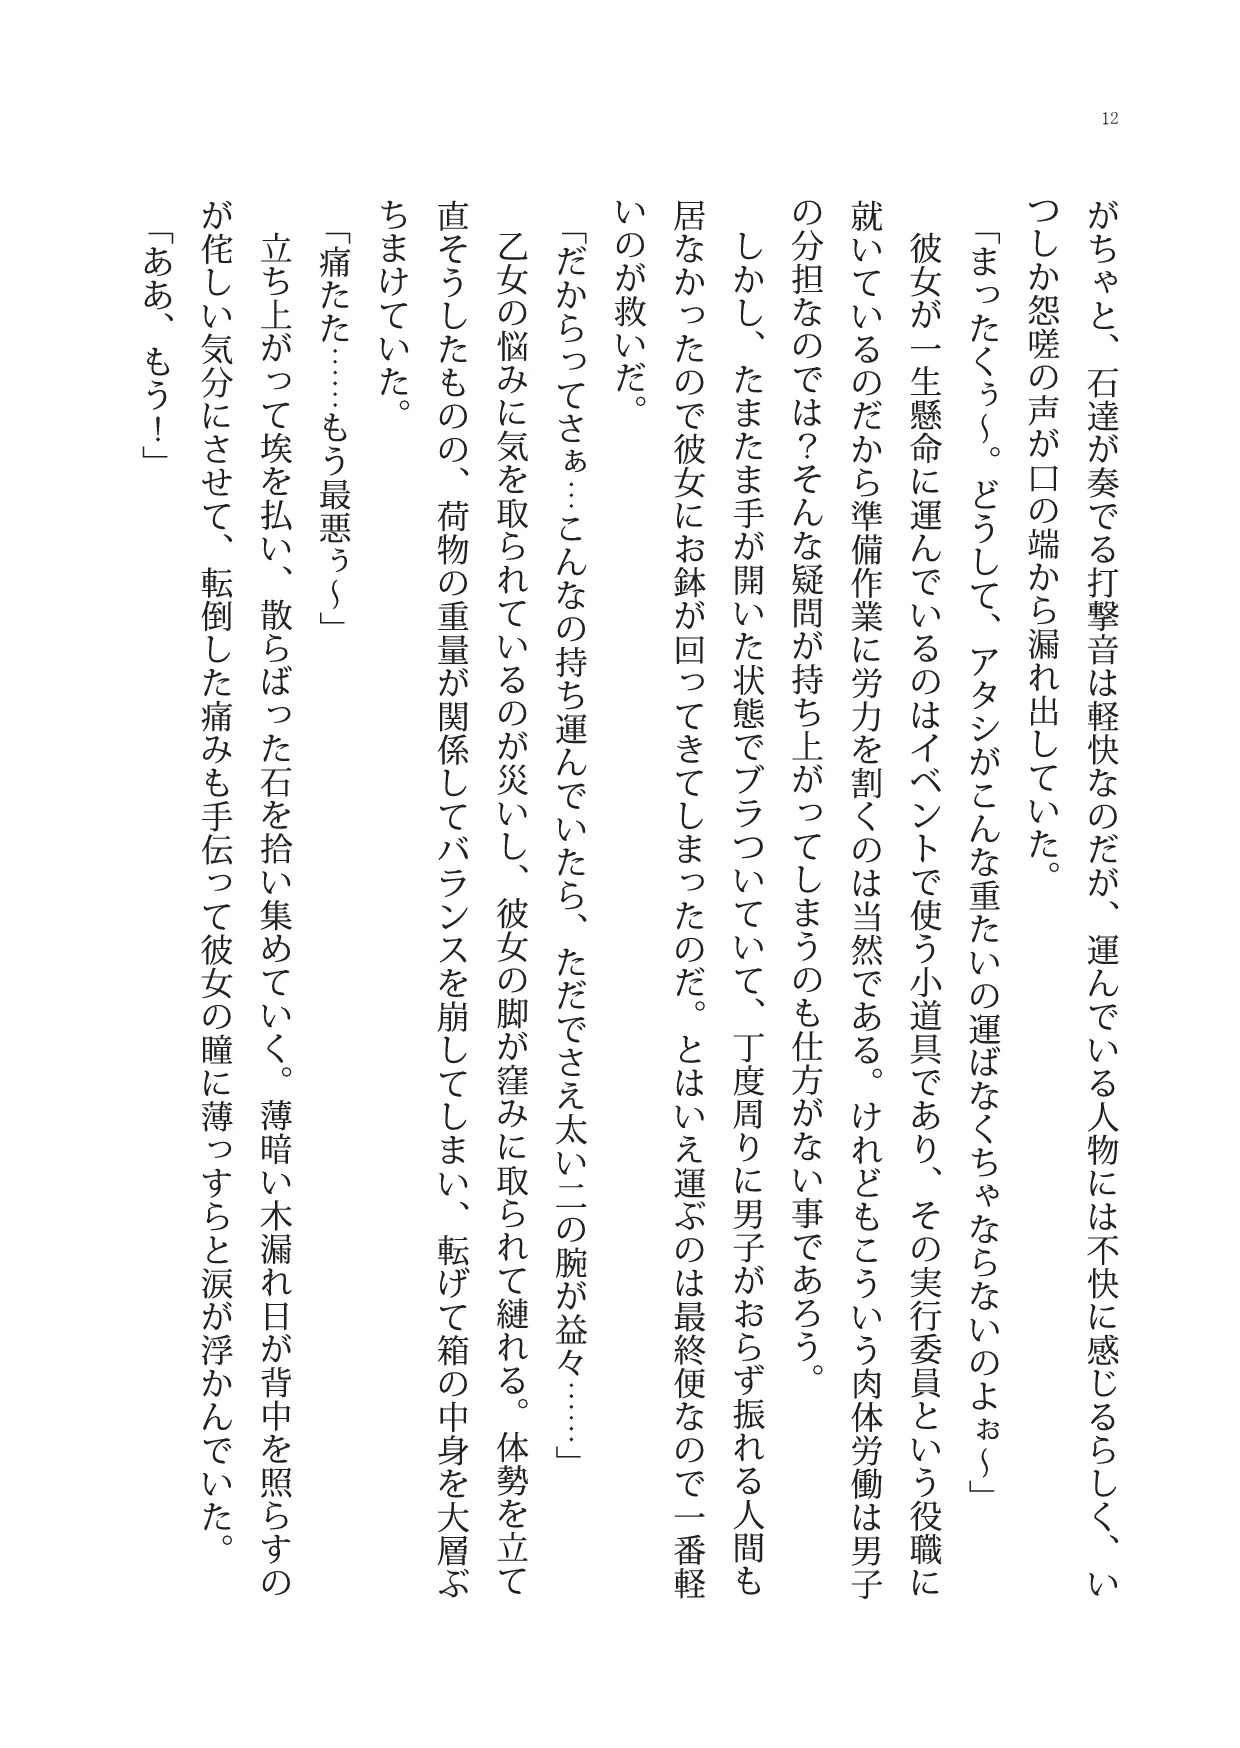 12
がちゃと、石達が奏でる打撃音は軽快なのだが、運んでいる人物には不快に感じるらしく、い
つしか怨嗟の声が口の端から漏れ出していた。
「まったくぅ～。どうして、アタシがこんな重たいの運ばなくちゃならないのよぉ～」
彼女が一生懸命に運んでいるのはイベントで使う小道具であり、その実行委員という役職に
就いているのだから準備作業に労力を割くのは当然である。けれどもこういう肉体労働は男子
の分担なのでは？そんな疑問が持ち上がってしまうのも仕方がない事であろう。
しかし、たまたま手が開いた状態でブラついていて、丁度周りに男子がおらず振れる人間も
居なかったので彼女にお鉢が回ってきてしまったのだ。とはいえ運ぶのは最終便なので一番軽
いのが救いだ。
「だからってさぁ…こんなの持ち運んでいたら、ただでさえ太い二の腕が益々……」
乙女の悩みに気を取られているのが災いし、彼女の脚が窪みに取られて縺れる。体勢を立て
直そうしたものの、荷物の重量が関係してバランスを崩してしまい、転げて箱の中身を大層ぶ
ちまけていた。
「痛たた……もう最悪ぅ～」
立ち上がって埃を払い、散らばった石を拾い集めていく。薄暗い木漏れ日が背中を照らすの
が侘しい気分にさせて、転倒した痛みも手伝って彼女の瞳に薄っすらと涙が浮かんでいた。
「ああ、もう！」